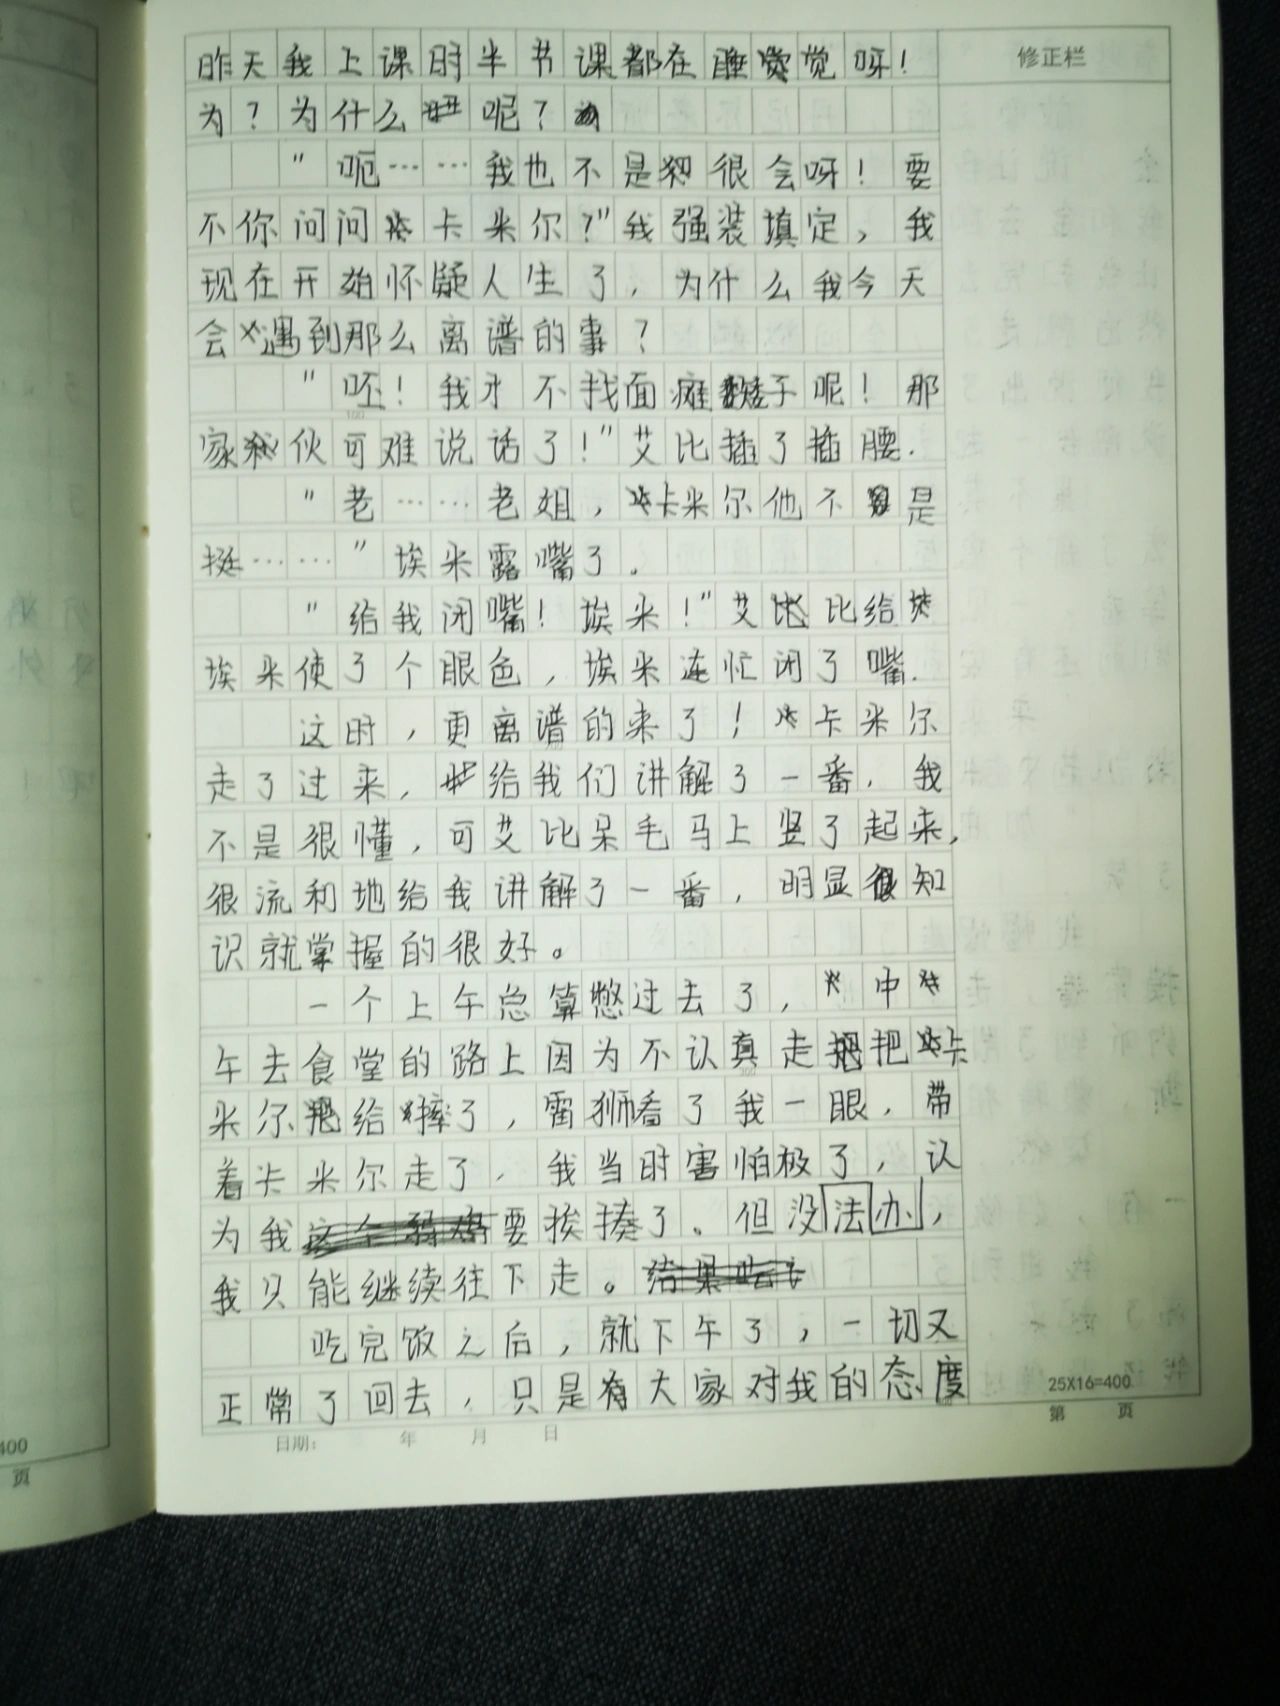 昨天我上课时半节课都在睡觉呀！
修正栏
为？为什么呢？
"呃……我也不是很会呀！要
不你问问卡米尔？"我强装填定，我
现在开始怀疑人生了，为什么我今天
会遇到那么离谱的事？
"呸！我才不找面瘫矮子呢！那
家伙可难说话了！"艾比插了插腰.
"老……老姐，卡米尔他不是
挺……"埃米露嘴了。
"给我闭嘴！埃米！"艾比给
埃米使了个眼色，埃米连忙闭了嘴.
这时，更离谱的来了！卡米尔
走了过来，给我们讲解了一番，我
不是很懂，可艾比呆毛马上竖了起来，
很流利地给我讲解了一番，明显很知
识就掌握的很好。
一个上午总算憋过去了，中
午去食堂的路上因为不认真走把卡
米尔给摔了，雷狮看了我一眼，带
着卡米尔走了，我当时害怕极了，认
为我要挨揍了。但没法办，
我只能继续往下走。
吃完饭之后，就下午了，一切又
正常了回去，只是有大家对我的态度
25X16=400
第 页
日期： 年 月 日
400
页